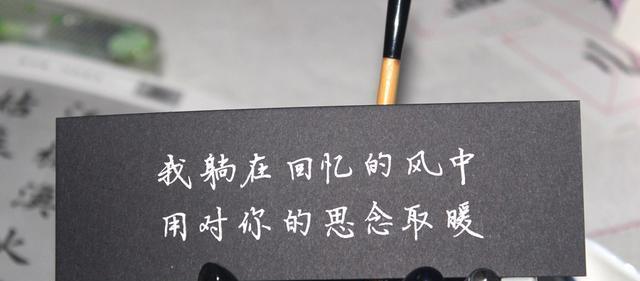 我躺在回忆的风中
用对你的思念取暖